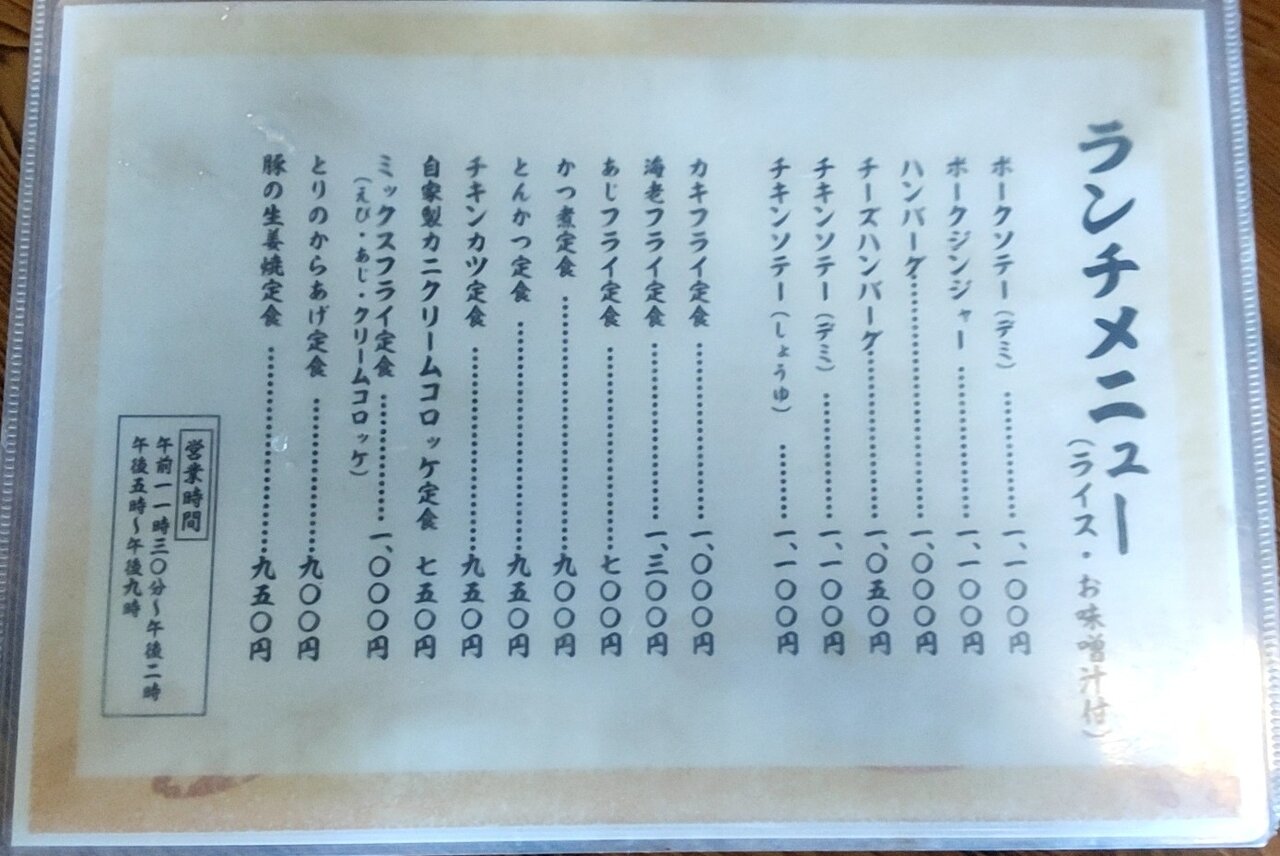 ランチメニュー
（ライス・お味噌汁付）
ポークソテー（デミ）…………一、一〇〇円
ポークジンジャー…………一、一〇〇円
ハンバーグ…………一、〇〇〇円
チーズハンバーグ…………一、〇五〇円
チキンソテー（デミ）…………一、一〇〇円
チキンソテー（しょうゆ）…………一、一〇〇円
カキフライ定食…………一、〇〇〇円
海老フライ定食…………一、三〇〇円
あじフライ定食…………七〇〇円
かつ煮定食…………九〇〇円
とんかつ定食…………九五〇円
チキンカツ定食…………九五〇円
自家製カニクリームコロッケ定食　七五〇円
ミックスフライ定食…………一、〇〇〇円
（えび・あじ・クリームコロッケ）
とりのからあげ定食…………九〇〇円
豚の生姜焼定食…………九五〇円
営業時間
午前一一時三〇分～午後二時
午後五時～午後九時